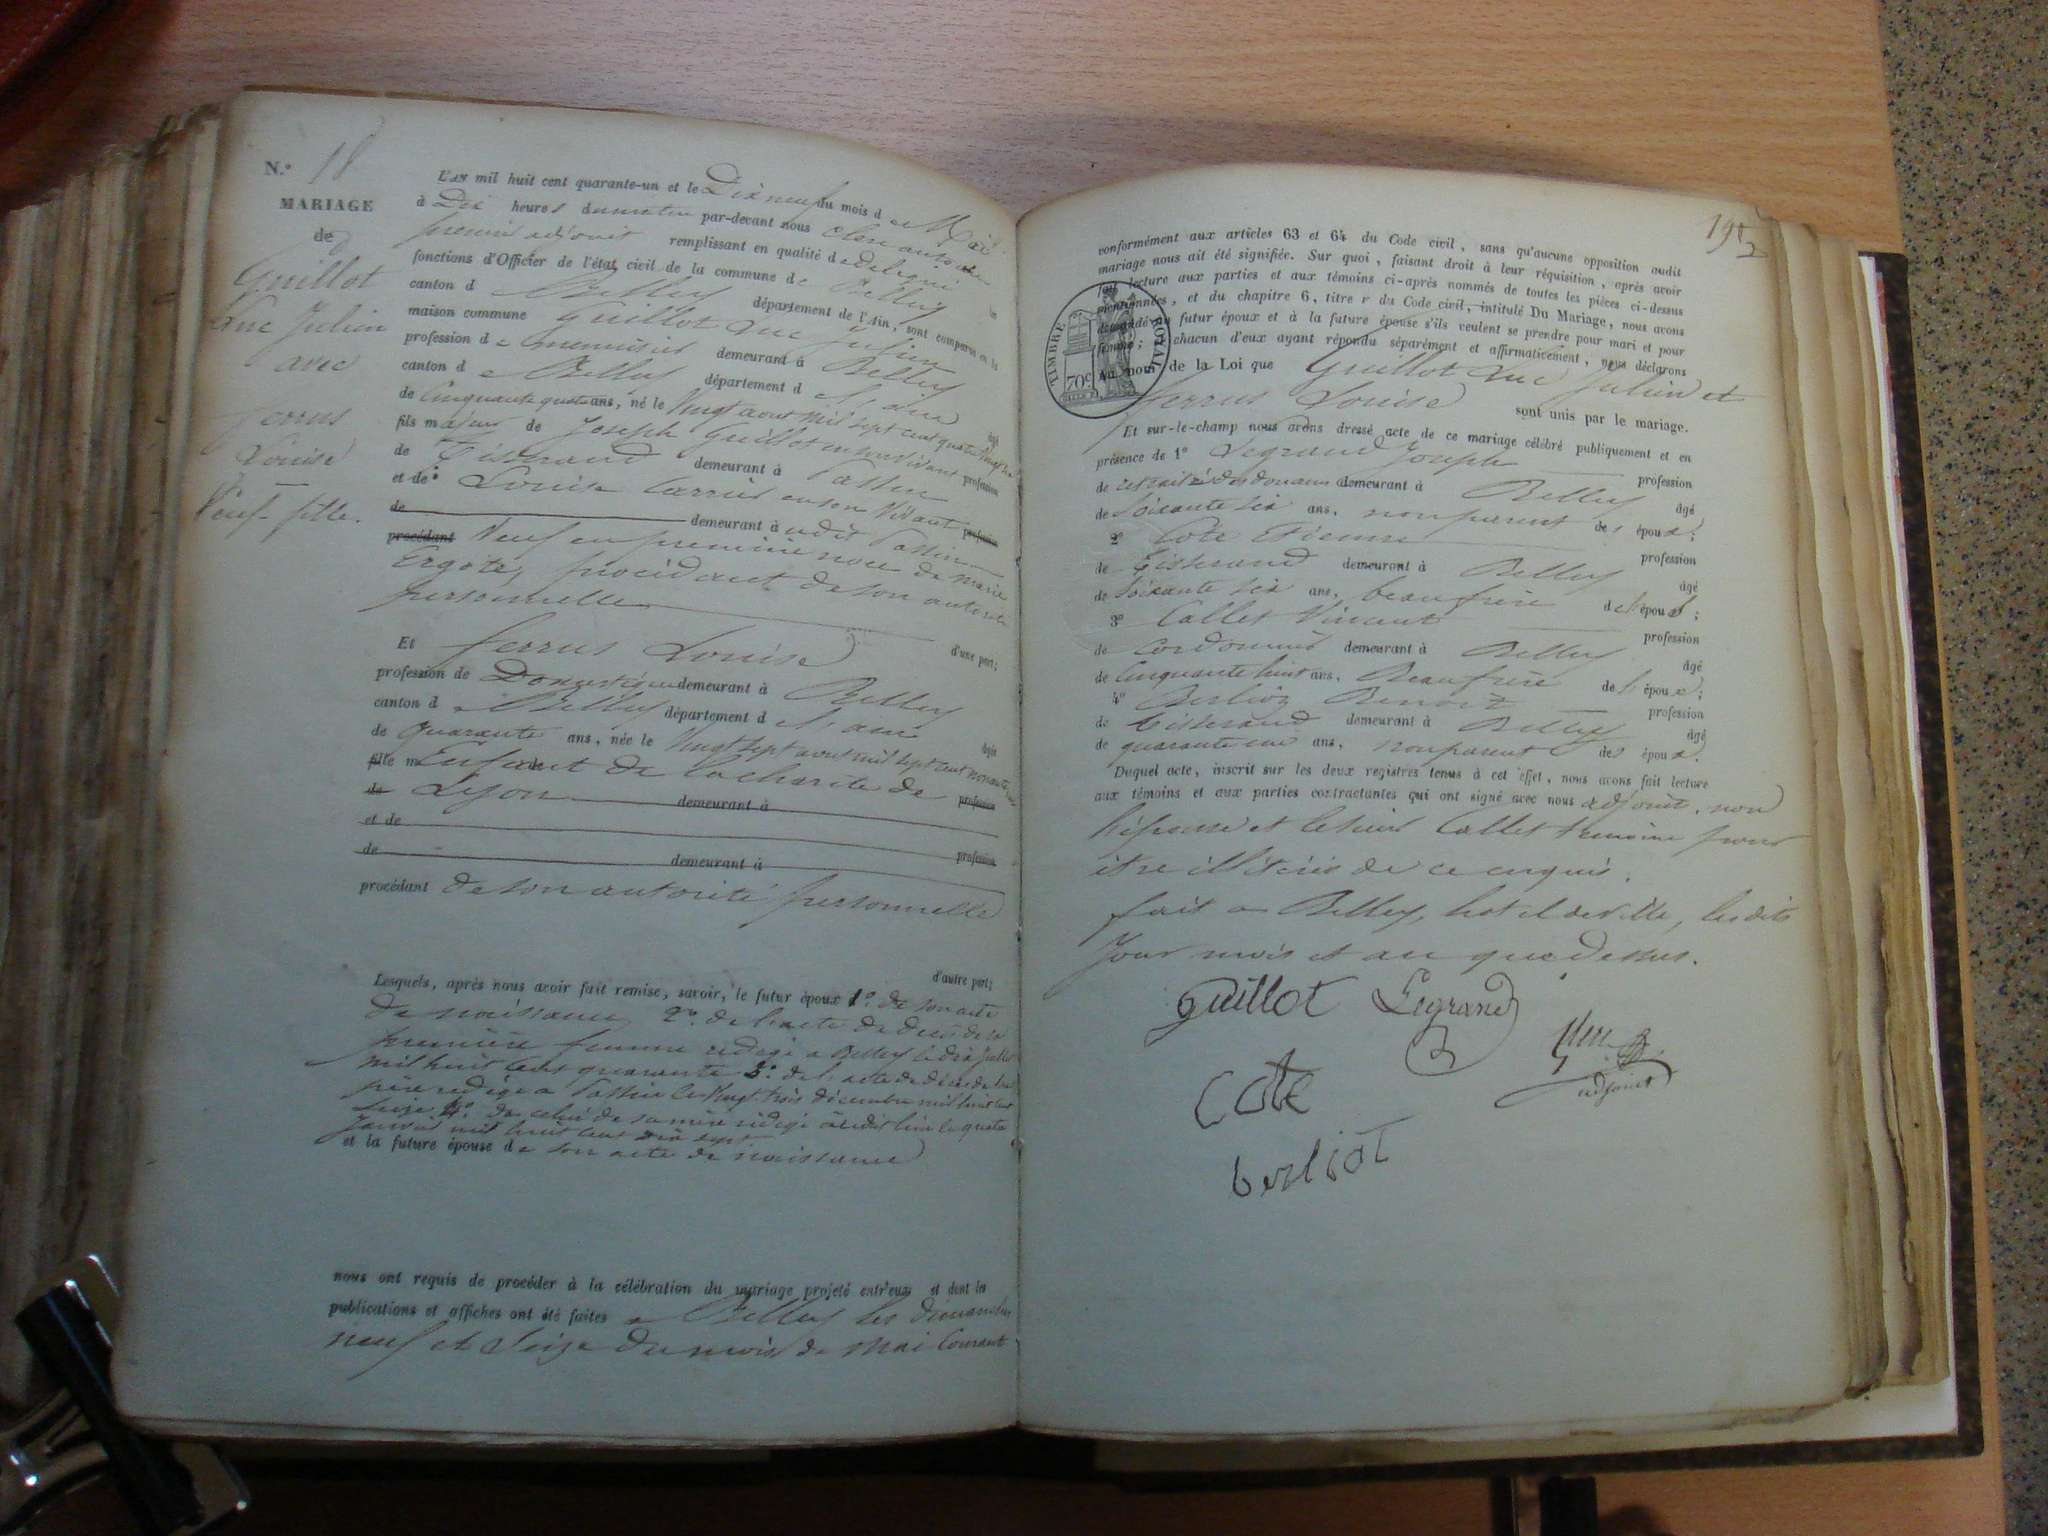 N.° 18
MARIAGE
de
Guillot
Luc Julien
avec
ferrus
Louise
Veuf - fille.
L'AN mil huit cent quarante-un et le Dix neuf du mois de Mai
à Dix heures du matin par-devant nous
premier adjoint remplissant en qualité de délégué les
fonctions d'Officier de l'état civil de la commune de Belley
canton de Belley département de l'Ain, sont comparus en la
maison commune Guillot Luc Julien
profession de menuisier demeurant à Belley
canton de Belley département de l'ain âgé
de Cinquante quatre ans, né le Vingt aout mil sept cent quatre vingt
fils majeur de Joseph Guillot en son vivant profession
de Tisserand demeurant à Passin
et de Louise Carrier en son Vivant profession
de demeurant à udit Passin
procédant Veuf en première noce de marie
Ergote, procédant de son autorité
personnelle
d'une part;
Et ferrus Louise
profession de Domestique demeurant à Belley
canton de Belley département de l'ain âgée
de quarante ans, née le Vingt sept aout mil sept cent
fille m Enfant de la charité de profession
de Lyon demeurant à
et de
de demeurant à profession
procédant de son autorité personnelle
d'autre part;
Lesquels, après nous avoir fait remise, savoir, le futur époux 1° de son acte
de naissance 2° de l'acte de décès de sa
première femme rédigé a Belley le dix Juillet
mil huit cent quarante 3° de l'acte de décès de son
père rédigé a Passin le Vingt trois décembre mil huit cent
seize 4° de celui de sa mère rédigé audit lieu le quatre
Janvier mil huit cent dix sept
et la future épouse de son acte de naissance
nous ont requis de procéder à la célébration du mariage projeté entr'eux et dont les
publications et affiches ont été faites a Belley les dimanches
neuf et Seize du mois de Mai Courant
195
2
conformément aux articles 63 et 64 du Code civil, sans qu'aucune opposition audit
mariage nous ait été signifiée. Sur quoi, faisant droit à leur réquisition, après avoir
fait lecture aux parties et aux témoins ci-après nommés de toutes les pièces ci-dessus
mentionnées, et du chapitre 6, titre v du Code civil, intitulé Du Mariage, nous avons
demandé au futur époux et à la future épouse s'ils veulent se prendre pour mari et pour
femme; chacun d'eux ayant répondu séparément et affirmativement, nous déclarons
au nom de la Loi que Guillot Luc Julien et
ferrus Louise sont unis par le mariage.
TIMBRE ROYAL
70c
Et sur-le-champ nous avons dressé acte de ce mariage célébré publiquement et en
présence de 1° Legrand Joseph profession
de retraité des douanes demeurant à Belley âgé
de Soixante six ans, non parent des époux;
2° Cote Etienne profession
de Tisserand demeurant à Belley âgé
de Soixante six ans, beau frère de l'époux;
3° Callet Vincent profession
de Cordonnier demeurant à Belley âgé
de Cinquante huit ans, Beau frère de l'époux;
4° Berlioz Benoit profession
de Tisserand demeurant à Belley âgé
de quarante ans, non parent des époux.
Duquel acte, inscrit sur les deux registres tenus à cet effet, nous avons fait lecture
aux témoins et aux parties contractantes qui ont signé avec nous adjoint, non
l'épouse et le sieur Callet témoin pour
être illitérés de ce enquis.
fait a Belley, hotel de ville, lesdits
Jour mois et an que dessus.
Guillot Legrand
adjoint
Cote
berliot